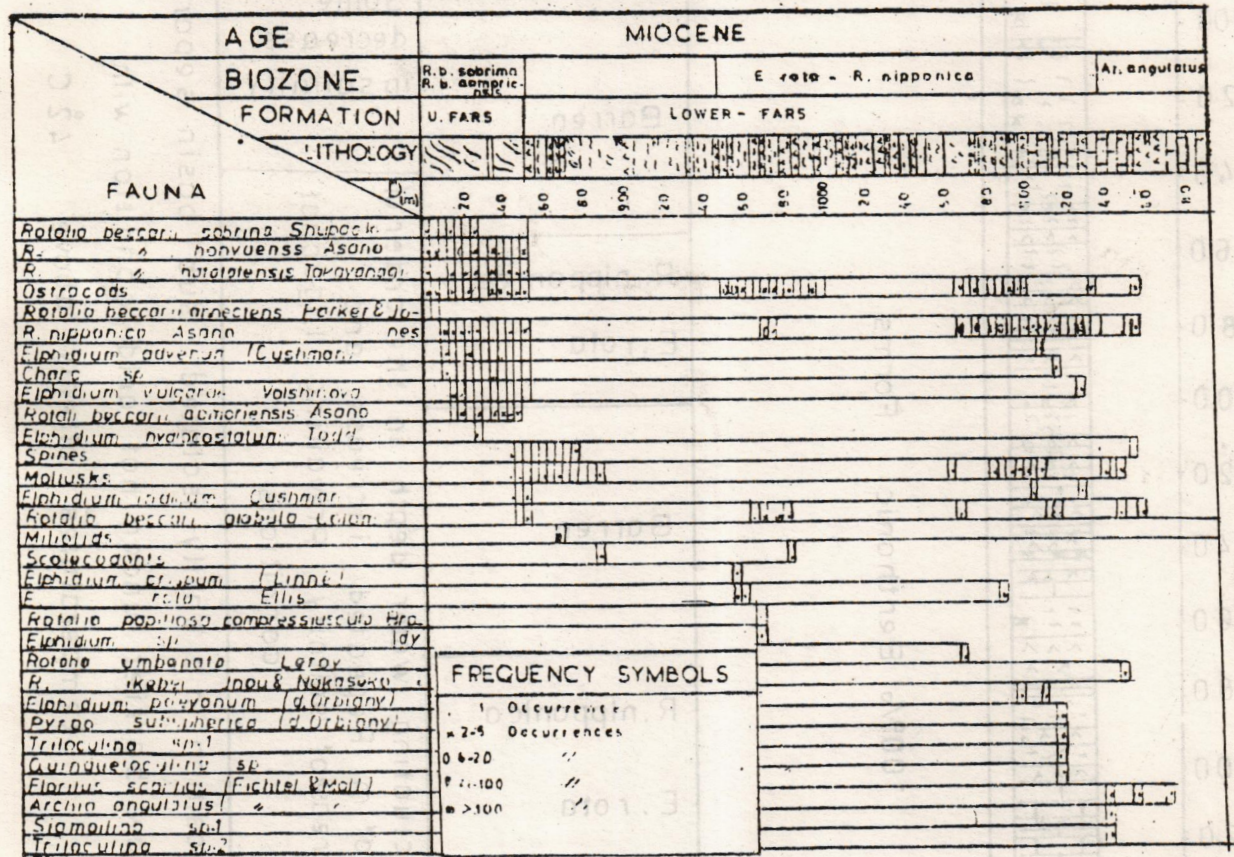 AGE
MIOCENE
BIOZONE
R. b. sobrina
R. b. aomoric-
nsis
E rota - R. nipponica
Ar. angulatus
FORMATION
U. FARS
LOWER - FARS
LITHOLOGY
D.(m)
FAUNA
20 40 60 80 900 20 40 60 80 1000 20 40 60 80 1100 20 40 60 80
Rotalia beccarii sobrina Shupack.
R. " honyaenss Asano
R. " hatatatensis Takayanagi
Ostracods
Rotalia beccarii arnectens Parker & Jo-
R. nipponica Asano nes
Elphidium advenun (Cushman)
Chara sp
Elphidium vulgaris Voloshinova
Rotali beccarii aomoriensis Asano
Elphidium hyalocostatum Todd
Spines
Mollusks
Elphidium Cushmar
Rotalia beccarii globula Colom
Miliolids
Scolecodonts
Elphidium crispum (Linné)
E rota Ellis
Rotalia papillosa compressiuscula Bra
Elphidium sp. dy
Rotalia umbonata Leroy
R. ikebei Inou & Nakaseko
Elphidium poeyanum (d'Orbigny)
Pyrgo subspherica (d'Orbigny)
Triloculina sp.1
Quinqueloculina sp
Florilus scaphus (Fichtel & Moll)
Archia angulatus " "
Sigmoilina sp.1
Triloculina sp.2
FREQUENCY SYMBOLS
1 Occurrence
x 2-5 Occurrences
0 6-20 "
-100 "
>100 "